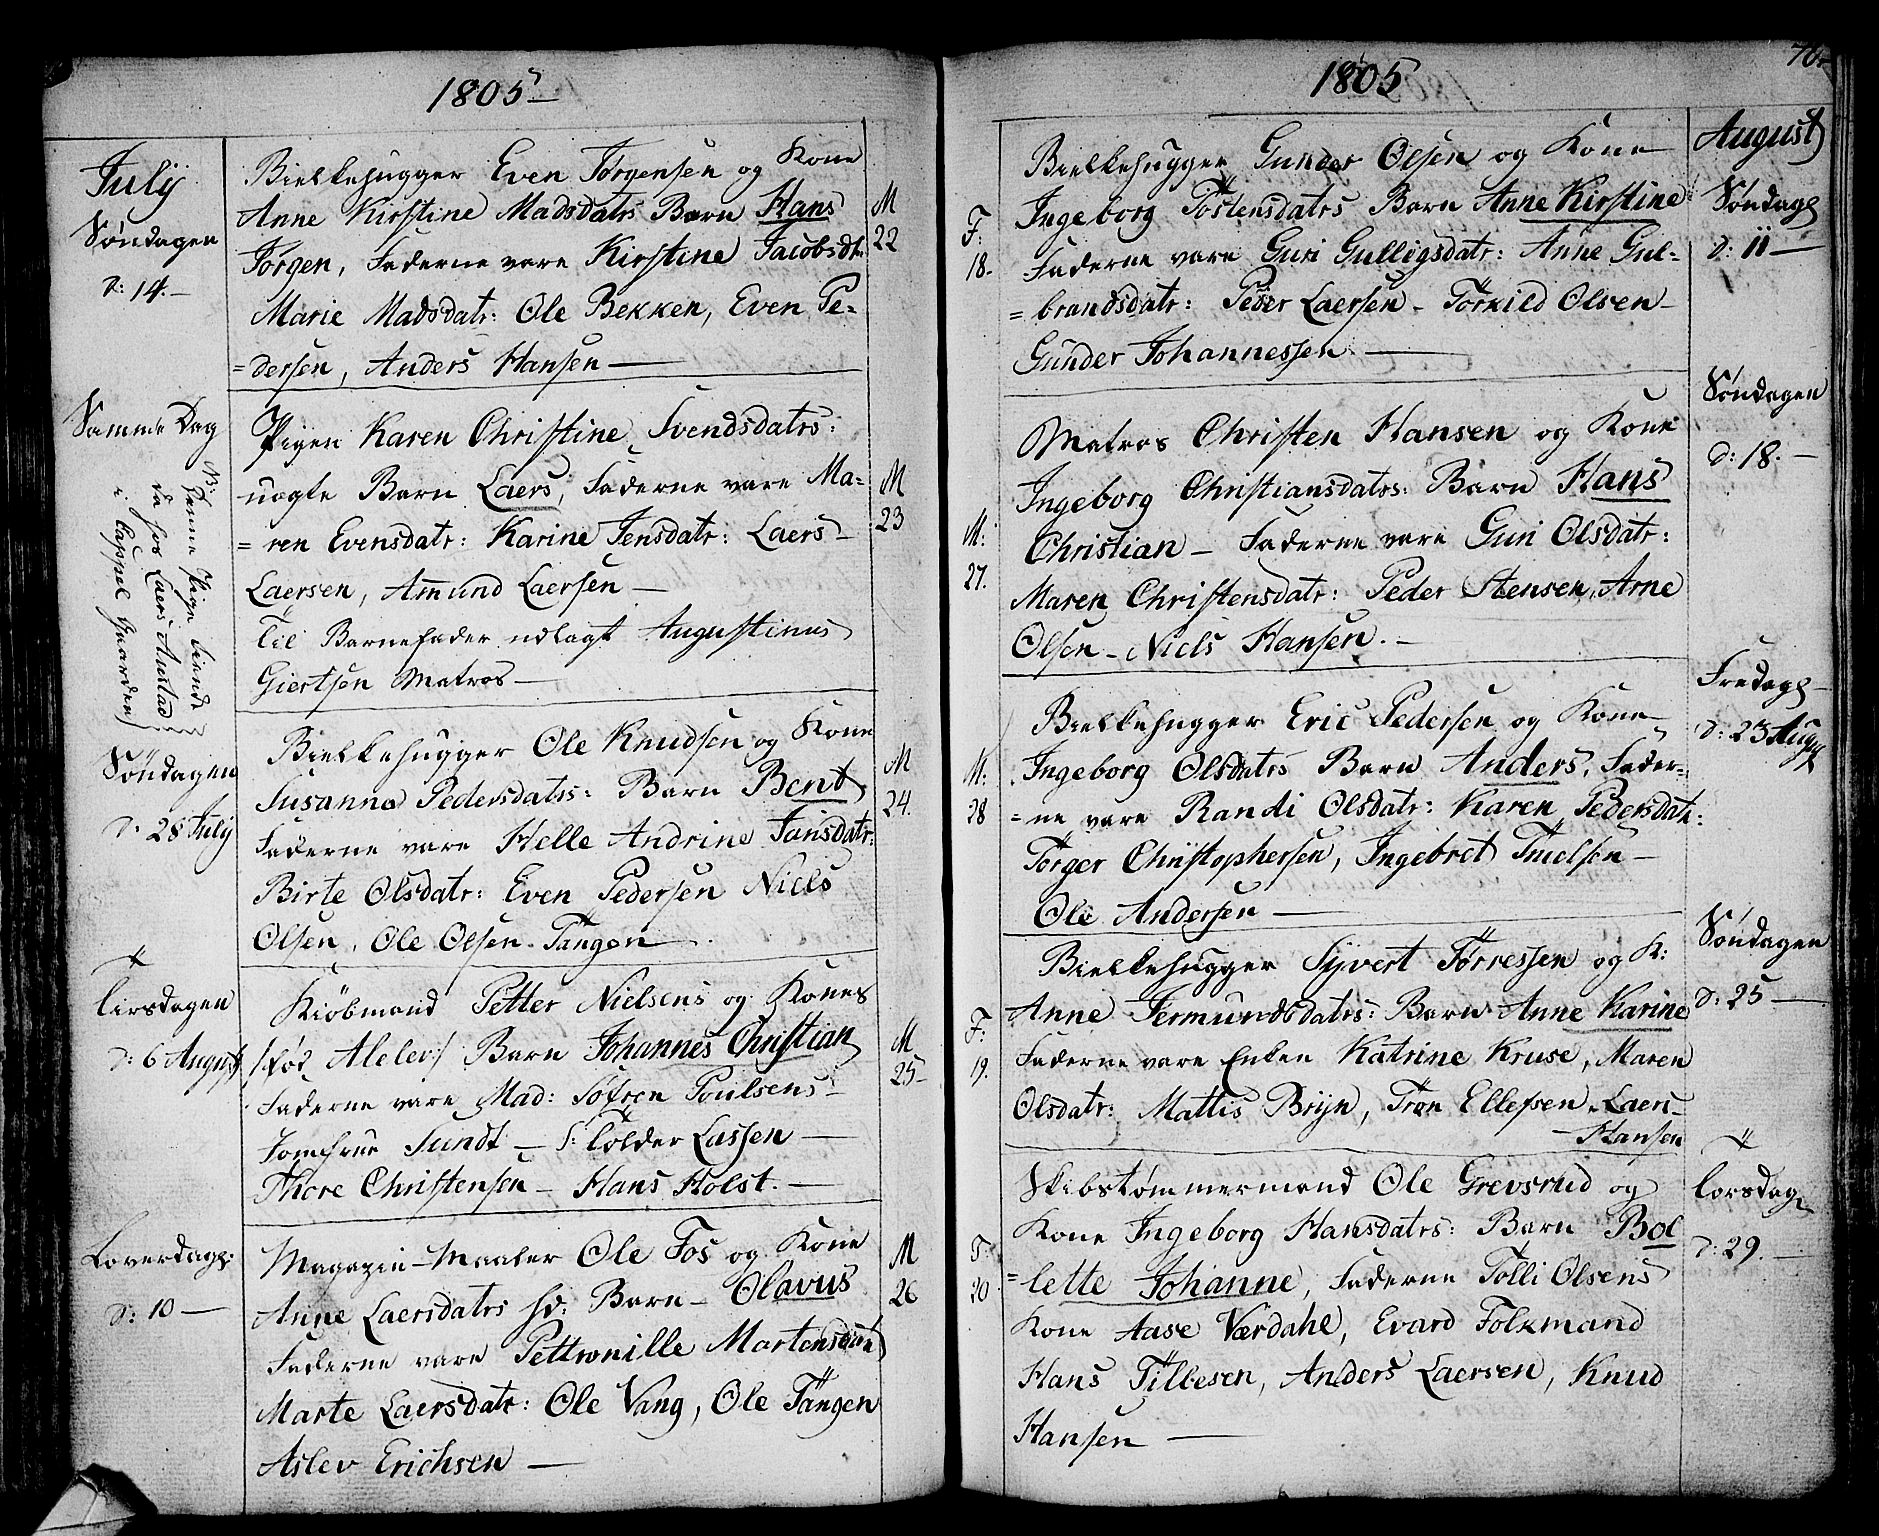 1805
Julÿ
Søndagen
d: 14. —
Bielkehugger Even Jørgensen og Kone
Anne Kirstine Madsdatrs Barn Hans
Jørgen, Fadderne vare Kirstine Jacobsdtr:
Marie Madsdatr: Ole Bekken, Even Pe-
=dersen, Anders Hansen —
M
22
Samme Dag
NB:
denne Pige tiende
da hos Laers Austad
i Cappel Gaarden
Pigen Karen Christine Svendsdatrs:
uægte Barn Laers, Fadderne vare Ma-
=ren Evensdatr: Karine Jensdatr: Laers
Laersen, Amund Laersen —
til Barnefader udlagt Augustinus
Giertsen Matros —
M
23
Søndagen
d: 28 Julÿ
Bielkehugger Ole Knudsen og Kone
Susanna Pedersdatrs: Barn Bent,
Fadderne vare Helle Andrine Jansdatr:
Birte Olsdatr: Even Pedersen Niels
Olsen, Ole Olsen Tangen —
M
24.
Tirsdagen
d: 6 August
Kiøbmand Petter Nielsens og Kones
/:fød Alelev/ Barn Johannes Christian
Fadderne vare Mad: Søfren Poulsens
Jomfrue Sundt — S: Tolder Lassen —
Thore Christensen — Hans Holst. —
M
25
Løverdag:
d: 10 —
Magazin-Maaler Ole Fos og Kone
Anne Laersdatrs hd: Barn — Olavus
Fadderne vare Pettronille Martensdatr
Marte Laersdatr: Ole Vang, Ole Tangen
Aslev Erichsen —
M
26
1805
70.
August
Søndags
d: 11 —
F:
18.
Bielkehugger Gunder Olsen og Kone
Ingeborg Tostensdatrs Barn Anne Kirstine
Fadderne vare Guri Gulligsdatr: Anne Gul-
=brandsdatr: Peder Laersen — Torkild Olsen —
Gunder Johannessen —
Søndagen
d: 18. —
M:
27.
Matros Christen Hansen og Kone
Ingeborg Christiansdatrs: Barn Hans
Christian — Fadderne vare Guri Olsdatr:
Maren Christensdatr: Peder Stensen, Arne
Olsen — Niels Hansen. —
Fredags
d: 23 Aug
M:
28
Bielkehugger Eric Pedersen og Kone
Ingeborg Olsdatrs Barn Anders, Fadder-
=ne vare Randi Olsdatr: Karen Pedersdatr:
Torger Christophersen, Ingebret Truelsen —
Ole Andersen —
Søndagen
d: 25 —
F:
19.
Bielkehugger Syvert Torressen og K:
Anne Jermundsdatrs: Barn Anne Karine
Fadderne vare Enken Katrine Kruse, Maren
Olsdatr: Mattis Bryn, Tron Ellefsen, Laers
— Hansen
Torsdag
d: 29. —
F.
20
Skibstømmermand Ole Grevsrud og
Kone Ingeborg Hansdatrs: Barn Bol
=lette Johanne, Fadderne Tolli Olsens
Kone Aase Værdahl, Evard Folkmand
Hans Tillesen, Anders Laersen, Knud
Hansen —